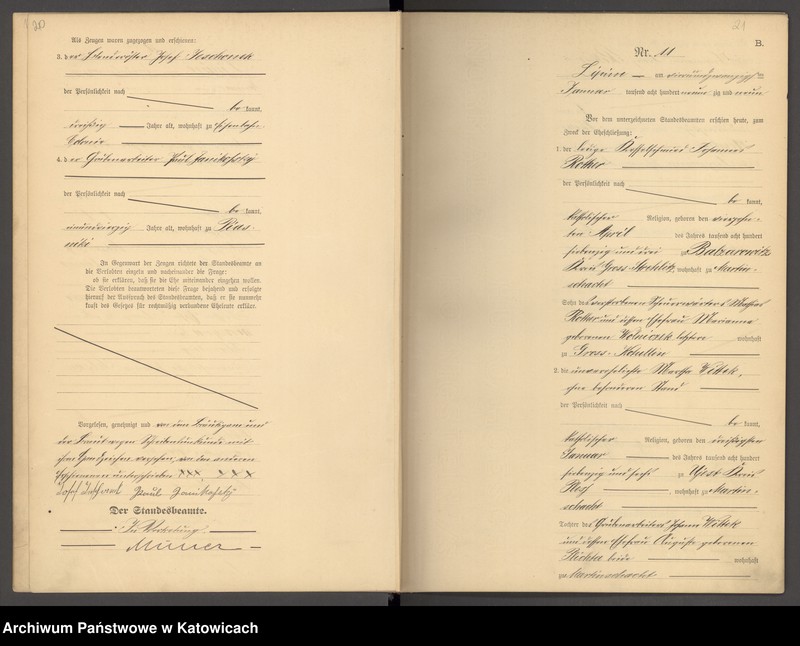 20
Als Zeugen waren zugezogen und erschienen:
3. der Standesritter Josef
der Persönlichkeit nach
be kannt,
dreißig Jahre alt, wohnhaft zu Hohenlohe
4. der Grubenarbeiter Paul Janikofsky
der Persönlichkeit nach
be kannt,
Jahre alt, wohnhaft zu Pias-
niki
In Gegenwart der Zeugen richtete der Standesbeamte an
die Verlobten einzeln und nacheinander die Frage:
ob sie erklären, daß sie die Ehe miteinander eingehen wollen.
Die Verlobten beantworteten diese Frage bejahend und erfolgte
hierauf der Ausspruch des Standesbeamten, daß er sie nunmehr
kraft des Gesetzes für rechtmäßig verbundene Eheleute erkläre.
Vorgelesen, genehmigt und von dem Bräutigam und
der Braut wegen Schreibensunkunde mit
ihren Handzeichen versehen, von den anderen
Erschienenen unterschrieben XXX XXX
Josef Paul Janikofsky
Der Standesbeamte.
In Vertretung
21
B.
Nr. 11
Lipine am vierundzwanzigsten
Januar tausend acht hundert neun zig und neun
Vor dem unterzeichneten Standesbeamten erschien heute, zum
Zweck der Eheschließung:
1. der ledige Kesselschmied Johannes
Rother
der Persönlichkeit nach
be kannt,
katholischer Religion, geboren den vierzehn-
ten April des Jahres tausend acht hundert
siebenzig und drei zu Balzarowitz
Kreis Gross Strehlitz, wohnhaft zu Martin-
schacht
Sohn des verstorbenen Mathias
Rother und dessen Ehefrau Marianna
geborenen Wolniczek letztere wohnhaft
zu Gross-
2. die unverehelichte Martha Wottek,
ohne besonderen Stand
der Persönlichkeit nach
be kannt,
katholischer Religion, geboren den dreißigsten
Januar des Jahres tausend acht hundert
siebenzig und sechs zu Kreis
Pleß, wohnhaft zu Martin-
schacht
Tochter des Grubenarbeiters Johann Wottek
und dessen Ehefrau Auguste geborenen
beide wohnhaft
zu Martinschacht
Archiwum Państwowe w Katowicach